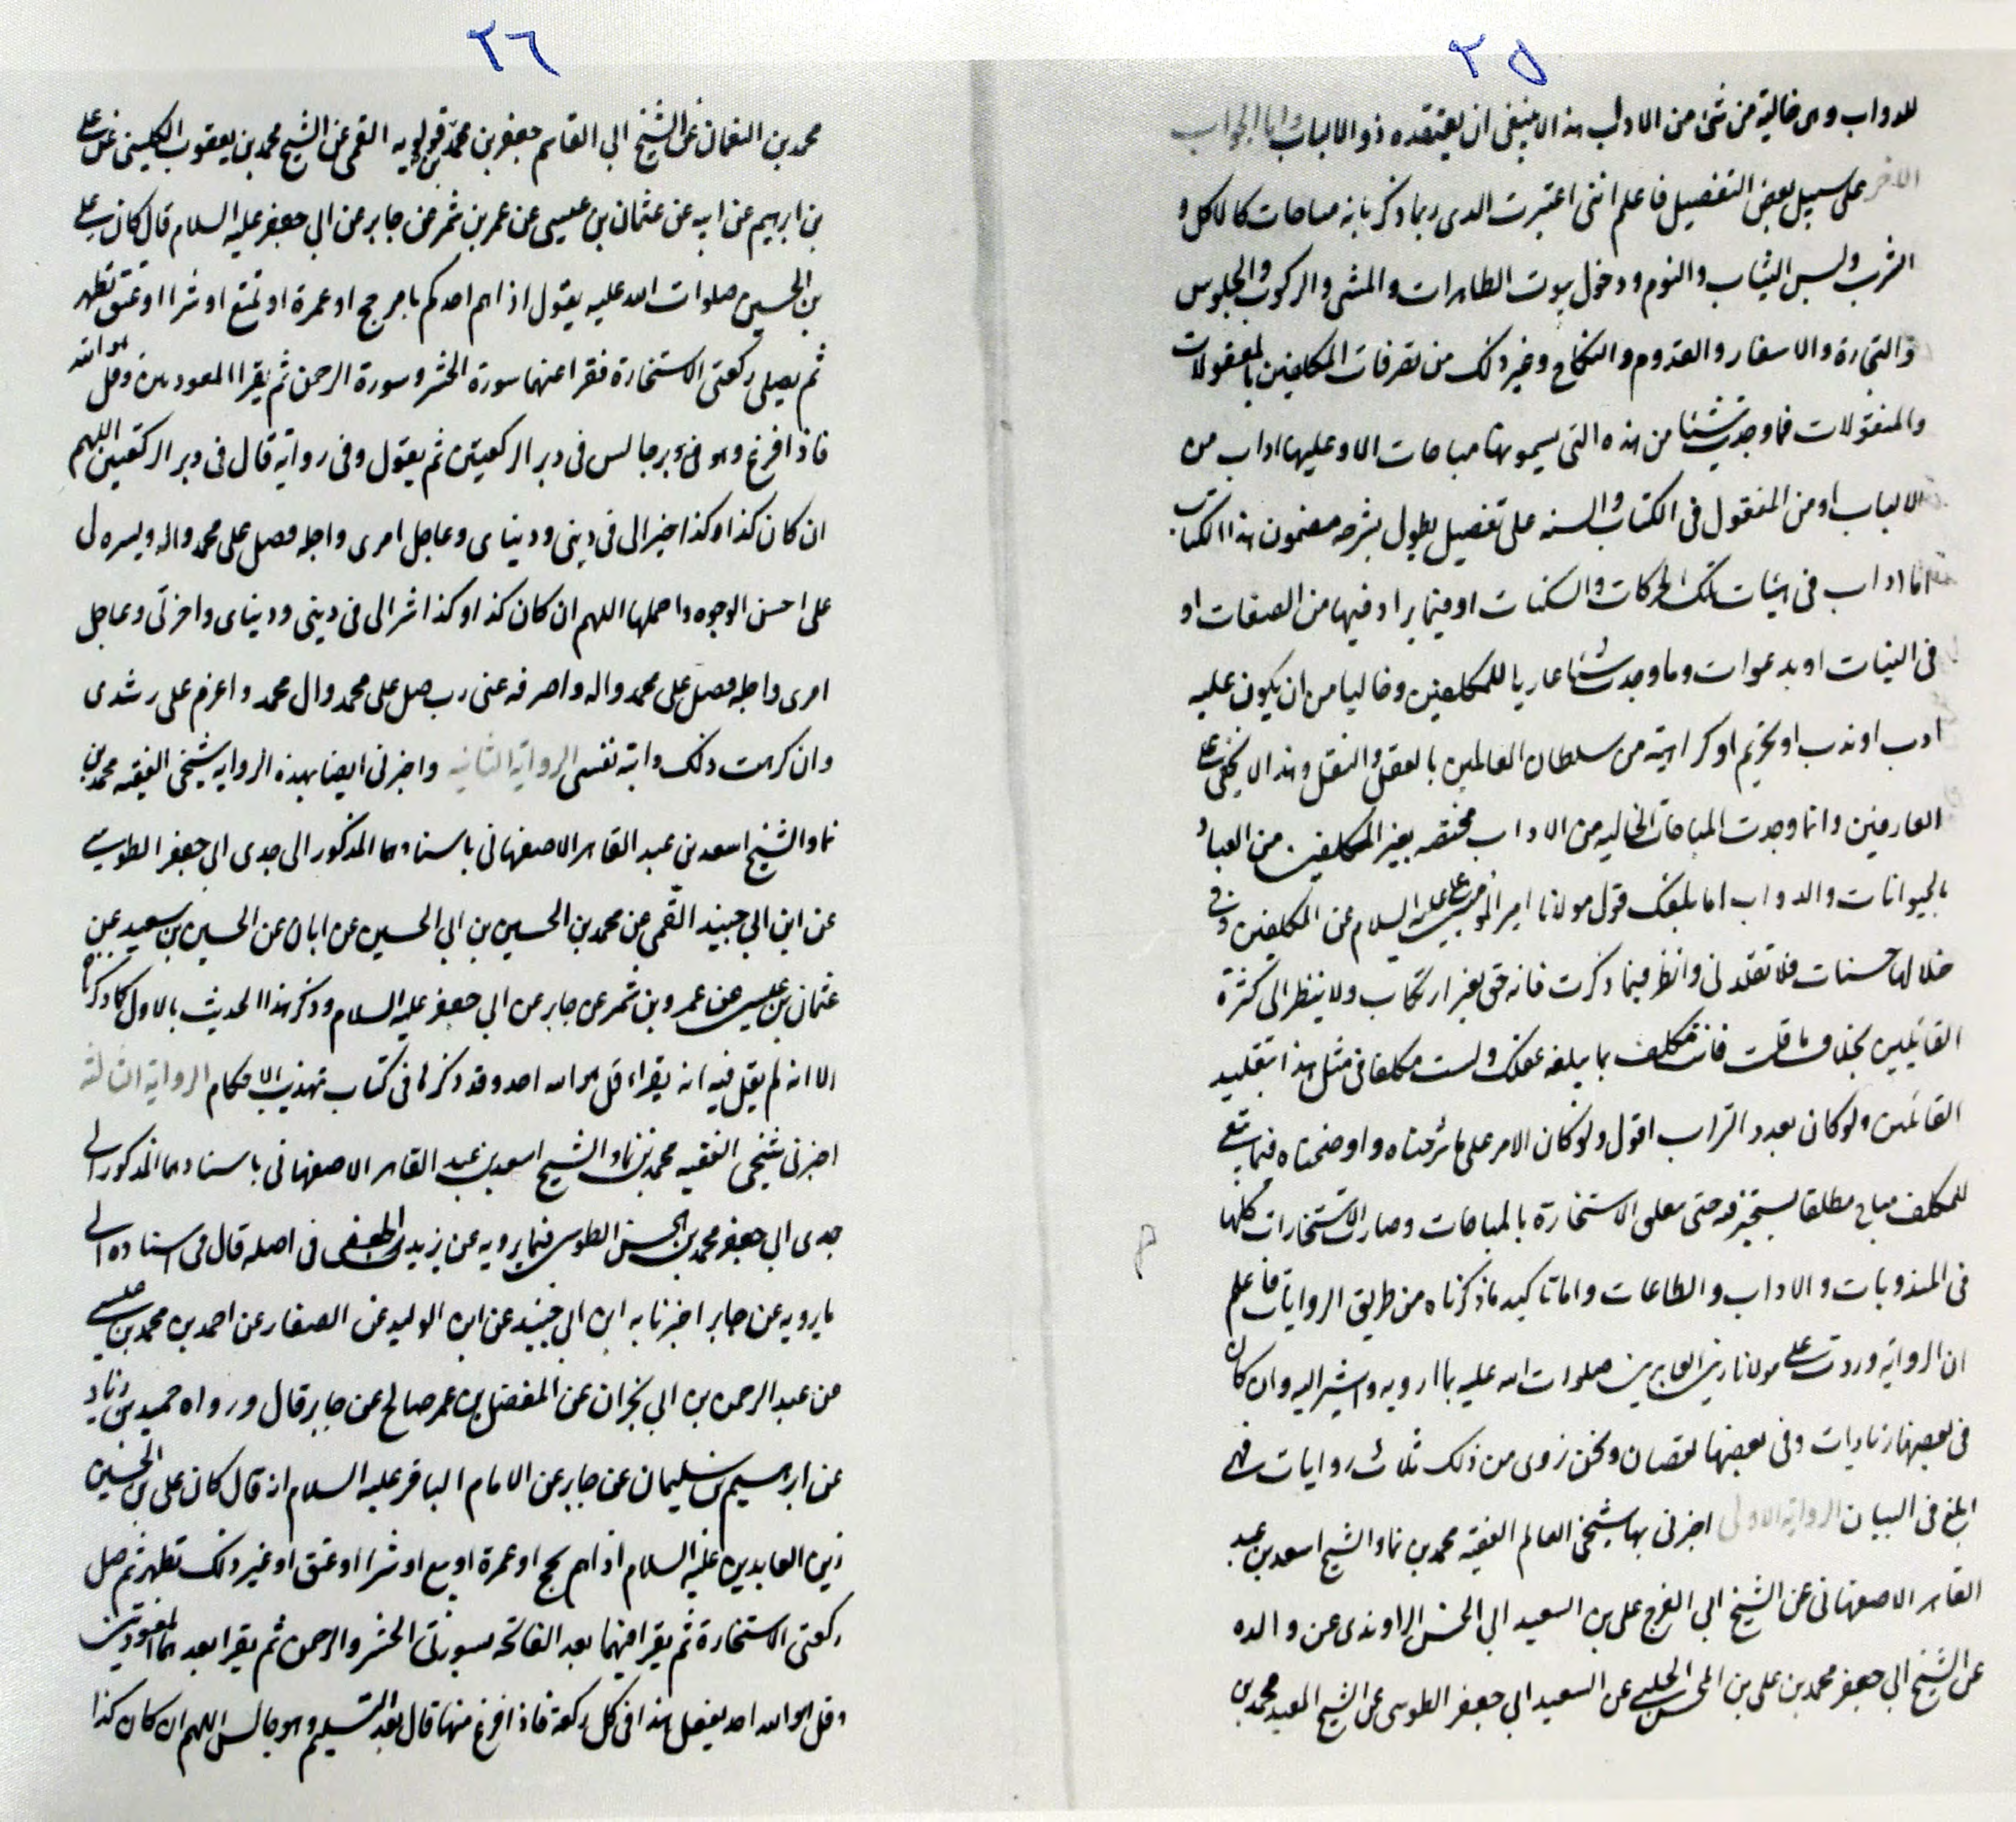 ٢٥
للدواب وهى خالية من شئ من الاداب هذا لا ينبغى ان يعتقده ذو الالباب واما الجواب
الاخر على سبيل بعض التفصيل فاعلم اننى اعتبرت الذى ربما ذكر بانه مباحات كالاكل و
الشرب ولبس الثياب والنوم ودخول بيوت الطهارات والمشى والركوب والجلوس
والتجارة والاسفار والقدوم والنكاح وغير ذلك من تصرفات المكلفين بالمعقولات
والمنقولات فما وجدت شيئا من هذه التى يسمونها مباحات الا وعليها اداب من
الالباب او من المنقول فى الكتاب والسنه على تفصيل يطول بشرحه مضمون هذا الكتاب
اما اداب فى هيئات تلك الحركات والسكنات او فيما يراد فيها من الصفات او
فى النيات او بدعوات وما وجدت شيئا عاريا للمكلفين وخاليا من ان يكون عليه
ادب او ندب او تحريم او كراهية من سلطان العالمين بالعقل والنقل وهذا لا يخفى على
العارفين وانما وجدت المباحات الخاليه من الاداب مختصه بغير المكلفين من العباد
بالحيوانات والدواب اما بلغك قول مولانا امير المومنين على عليه السلام عن المكلفين وفى
حلالها حسنات فلا تقلدنى وانظر فيما ذكرت فانه حق بغير ارتكاب ولا ينظر الى كثرة
القائلين بخلاف ما قلت فانت مكلف بما يبلغه عقلك ولست مكلفا فى مثل هذا بتقليد
القائلين ولو كان بعدد التراب اقول ولو كان الامر على ما شرحناه واوضحناه فيما يتبع
للمكلف مباح مطلقا يستخير فيه حتى معلى الاستخارة بالمباحات وصارت الاستخارات كلها
فى المندوبات والاداب والطاعات واما تاكيد ما ذكرناه من طريق الروايات فاعلم
ان الرواية وردت على مولانا زين العابدين صلوات الله عليه بما ارويه واشير اليه وان كان
فى بعضها زيادات وفى بعضها نقصان ونحن نروى من ذلك ثلاث روايات فهى
ابلغ فى البيان الرواية الاولى اخبرنى بها شيخى العالم الفقيه محمد بن نما والشيخ اسعد بن عبد
القاهر الاصفهانى عن الشيخ ابى الفرج على بن السعيد ابى الحسن الراوندى عن والده
عن الشيخ ابى جعفر محمد بن على بن المحسن الحلبى عن السعيد ابى جعفر الطوسى عن الشيخ المفيد محمد بن
٢٦
محمد بن النعمان عن الشيخ ابى القاسم جعفر بن محمد بن قولويه القمى عن الشيخ محمد بن يعقوب الكلينى عن على
بن ابرهيم عن ابيه عن عثمان بن عيسى عن عمر بن شمر عن جابر عن ابى جعفر عليه السلام قال كان على
بن الحسين صلوات الله عليه يقول اذا هم احدكم بامر حج او عمرة او تمتع او شرا او عتق تطهر
ثم يصلى ركعتى الاستخارة فقرا عنهما سورة الحشر وسورة الرحمن ثم يقرا المعوذتين وقل هو الله
فاذا فرغ وهو فى دبر جالس فى دبر الركعتين ثم يقول وفى رواية قال فى دبر الركعتين اللهم
ان كان كذا وكذا خيرا لى فى دينى ودنياى وعاجل امرى واجله فصل على محمد واله ويسره لى
على احسن الوجوه واجملها اللهم ان كان كذا وكذا شرا لى فى دينى ودنياى واخرتى وعاجل
امرى واجله فصل على محمد واله واصرفه عنى رب صل على محمد وال محمد واعزم على رشدى
وان كرهت ذلك وابته نفسى الرواية الثانيه واخبرنى ايضا بهذه الروايه شيخى الفقيه محمد بن
نما والشيخ اسعد بن عبد القاهر الاصفهانى باسنادهما المذكور الى جدى ابى جعفر الطوسى
عن ابن ابى جنيد القمى عن محمد بن الحسين بن ابى الحسين عن ابان عن الحسين بن سعيد عن
عثمان بن عيسى عن عمرو بن شمر عن جابر عن ابى جعفر عليه السلام وذكر هذا الحديث بالاول كما ذكرناه
الا انه لم يقل فيه انه يقراء قل هو الله احد وقد ذكرها فى كتاب تهذيب الاحكام الرواية الثالثة
اخبرنى شيخى الفقيه محمد بن نما والشيخ اسعد بن عبد القاهر الاصفهانى باسنادهما المذكور الى
جدى ابى جعفر محمد بن الحسن الطوسى فيما يرويه عن يزيد الجعفى فى اصله قال فى اسناده الى
ما يرويه عن جابر اخبرنا به ابن ابى جنيد عن ابن الوليد عن الصفار عن احمد بن محمد بن عيسى
عن عبد الرحمن بن ابى نجران عن المفضل بن عمر صالح عن جابر قال ورواه حميد بن زياد
عن ابرهسيم بن سليمان عن جابر عن الامام الباقر عليه السلام انه قال كان على بن الحسين
زين العابدين عليه السلام اذا هم بحج او عمرة او بيع او شرا او عتق او غير ذلك تطهر ثم صل
ركعتى الاستخارة ثم يقرا فيهما بعد الفاتحه بسورتى الحشر والرحمن ثم يقرا بعدهما المعوذتين
وقل هو الله احد يفعل هذا فى كل ركعة فاذا فرغ منها قال بعد التسليم وهو جالس اللهم ان كان كذا